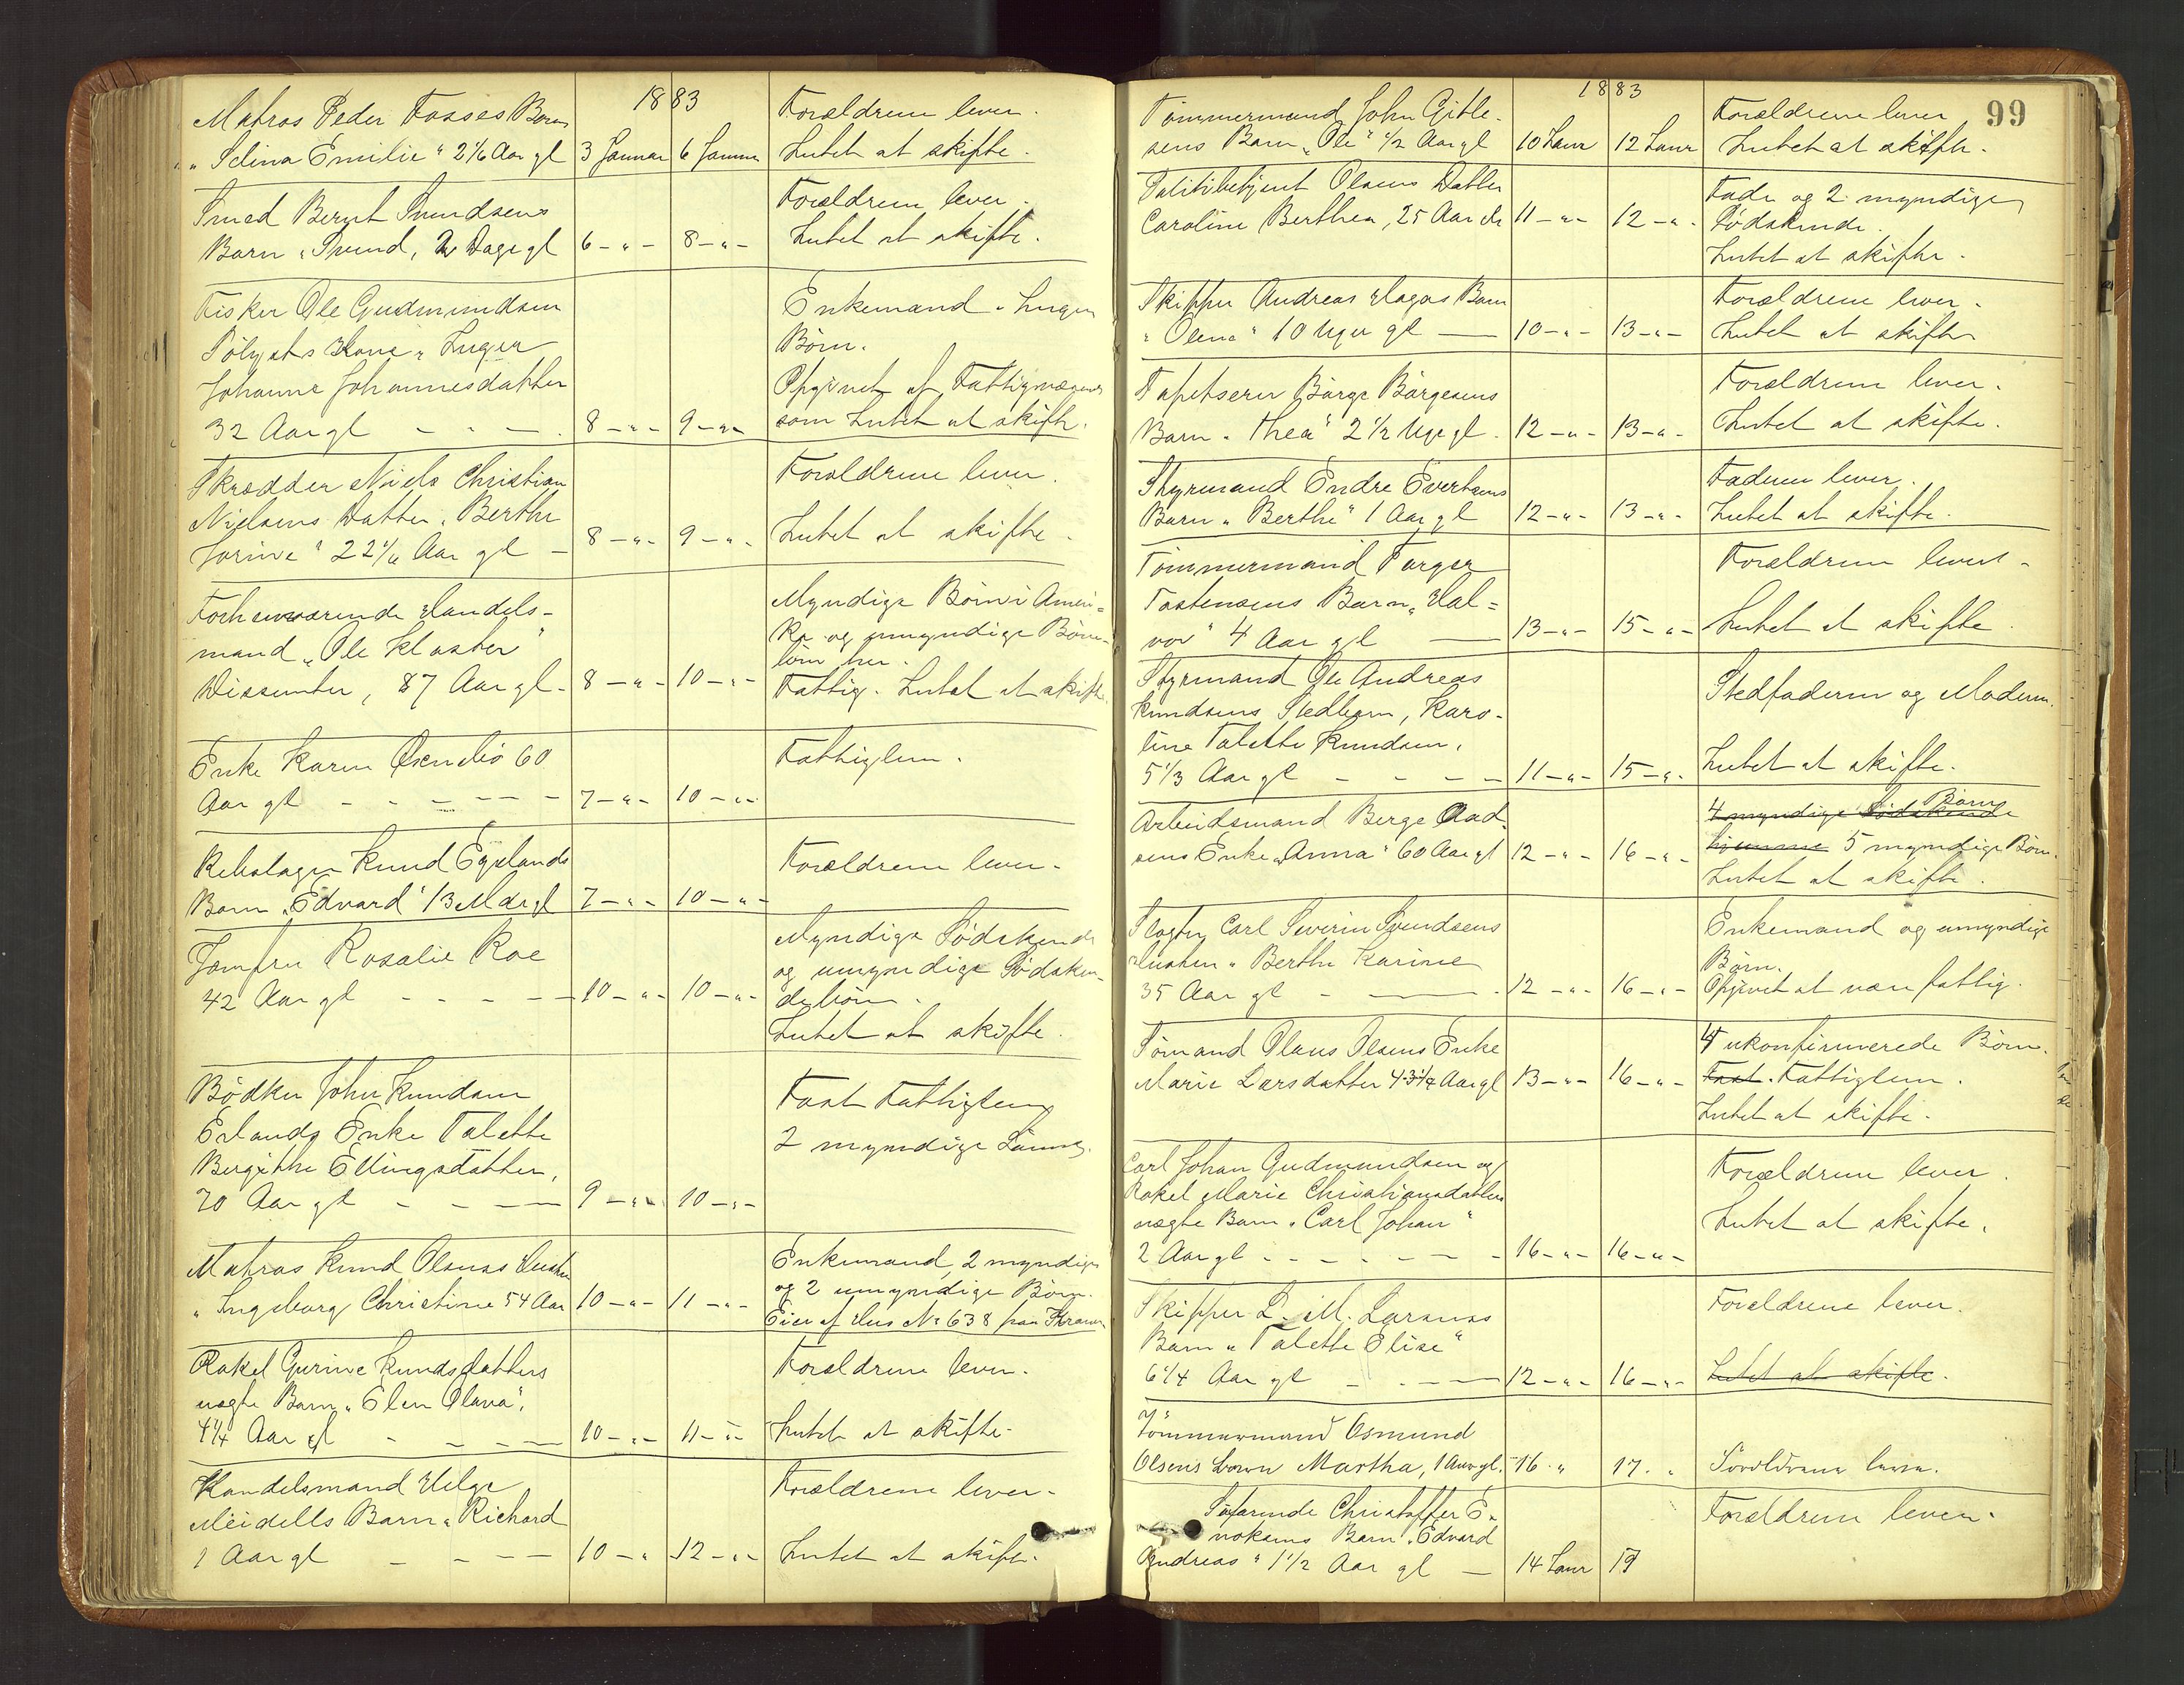 1883
Matros Peder Fosses Barn
"Selina Emilie" 2 1/6 Aar gl 3 Januar 6 Januar
Forældrene lever.
Intet at skifte.
Smed Bernt Svendsens
Barn "Svend, 2 Dage gl 6 - " - 8 - " -
Forældrene lever.
Intet at skifte.
Fisker Ole Gudmundsen
Sølyets Kone, Inger
Johanne Johannesdatter
32 Aar gl - - - 8 - " - 9 - " -
Enkemand. Ingen
Børn.
Opgivet af Fattigvæsenet
som Intet at skifte.
Skrædder Niels Christian
Nielsens Datter "Berthe
Jorine" 22 Aar gl - 8 - " - 9 - " -
Forældrene lever.
Intet at skifte.
Forhenværende Handels-
mand "Ole Kloster"
Dissenter, 87 Aar gl - 8 - " - 10 - " -
Myndige Børn i Ameri=
ka og umyndige Børne-
børn her.
Fattig. Intet at skifte.
Enke Karen 60
Aar gl - - - - - - 7 - " - 10 - " -
Fattiglem.
Rebslager Knud Egelands
Barn "Edvard" 13 Mdr gl 7 - " - 10 - " -
Forældrene lever.
Jomfru Rosalie Roe
42 Aar gl - - - - 10 - " - 10 - " -
Myndige Sødskende
og umyndige Sødsken-
debørn.
Intet at skifte.
Bødker John Knudsen
Erlands Enke Talette
Bergithe Ellingsdatter,
70 Aar gl - - - 9 - " - 10 - " -
Fast Fattiglem
2 myndige Sønner.
Matros Knud Olsens Hustru
"Ingeborg Christine 54 Aar 10 - " - 11 - " -
Enkemand, 2 myndige
og 2 umyndige Børn.
Eier af Hus No 638 paa
Rakel Gurine Knudsdatters
uægte Barn "Elen Olava",
4 1/4 Aar gl - - - - 10 - " - 11 - " -
Forældrene lever.
Intet at skifte.
Handelsmand Helge
Meidells Barn "Richard
1 Aar gl - - - - 10 - " 12 - " -
Forældrene lever.
Intet at skifte.
99
1883
Tømmermand John Gitle-
sens Barn "Ole" 1/2 Aar gl 10 Januar 12 Januar
Forældrene lever
Intet at skifte.
Politibetjent Olsens Datter
Caroline Berthea, 25 Aar 11 - " - 12 - " -
Fader og 2 myndige
Sødskende.
Intet at skifte.
Skipper Andreas Hagas Barn
"Olena" 10 Uger gl - 10 - " - 13 - " -
Forældrene lever.
Intet at skifte
Tapetserer Børge Børgesens
Barn "Thea" 2 1/2 Uge gl. 12 - " - 13 - " -
Forældrene lever.
Intet at skifte.
Styrmand Endre Evertsens
Barn "Berthe" 1 Aar gl 12 - " - 13 - " -
Faderen lever.
Intet at skifte.
Tømmermand Torger
Tostensens Barn "Hal=
vor" 4 Aar gl - 13 - " - 15 - " -
Forældrene lever.
Intet at skifte.
Styrmand Ole Andreas
Knudsens Stedbarn, Karo-
line Talette Knudsen,
5 1/3 Aar gl - - - - 11 - " - 15 - " -
Stedfaderen og Moderen.
Intet at skifte.
Arbeidsmand Berge Aad-
sens Enke "Anna" 60 Aar gl 12 - " - 16 - " -
Børn
4 myndige Sødskende
hjemme 5 myndige Børn.
Intet at skifte.
Slagter Carl Severin Svendsens
Hustru "Berthe Karine
35 Aar gl - - 12 - " - 16 - " -
Enkemand og umyndige
Børn.
Opgivet at være fattig.
Sømand Olaus Olsens Enke
Marie Larsdatter 43 1/4 Aar gl 13 - " - 16 - " -
4 ukonfirmerede Børn.
Fast. Fattiglem.
Intet at skifte.
Carl Johan Gudmundsen og
Rakel Marie Christiansdatters
uægte Barn "Carl Johan"
2 Aar gl - - - - - 16 - " - 16 - " -
Forældrene lever.
Intet at skifte.
Skipper L. M. Larsens
Barn "Talette Elise"
6 1/4 Aar gl - - - 12 - " - 16 - " -
Forældrene lever.
Intet at skifte.
Tømmermand Osmund
Olsens barn Martha, 1 Aar gl. 16 " 17 "
Forældrene lever.
Søfarende Christoffer E-
noksens Barn "Edvard
Andreas" 1 1/2 Aar gl - 14 Januar 17
Forældrene lever.